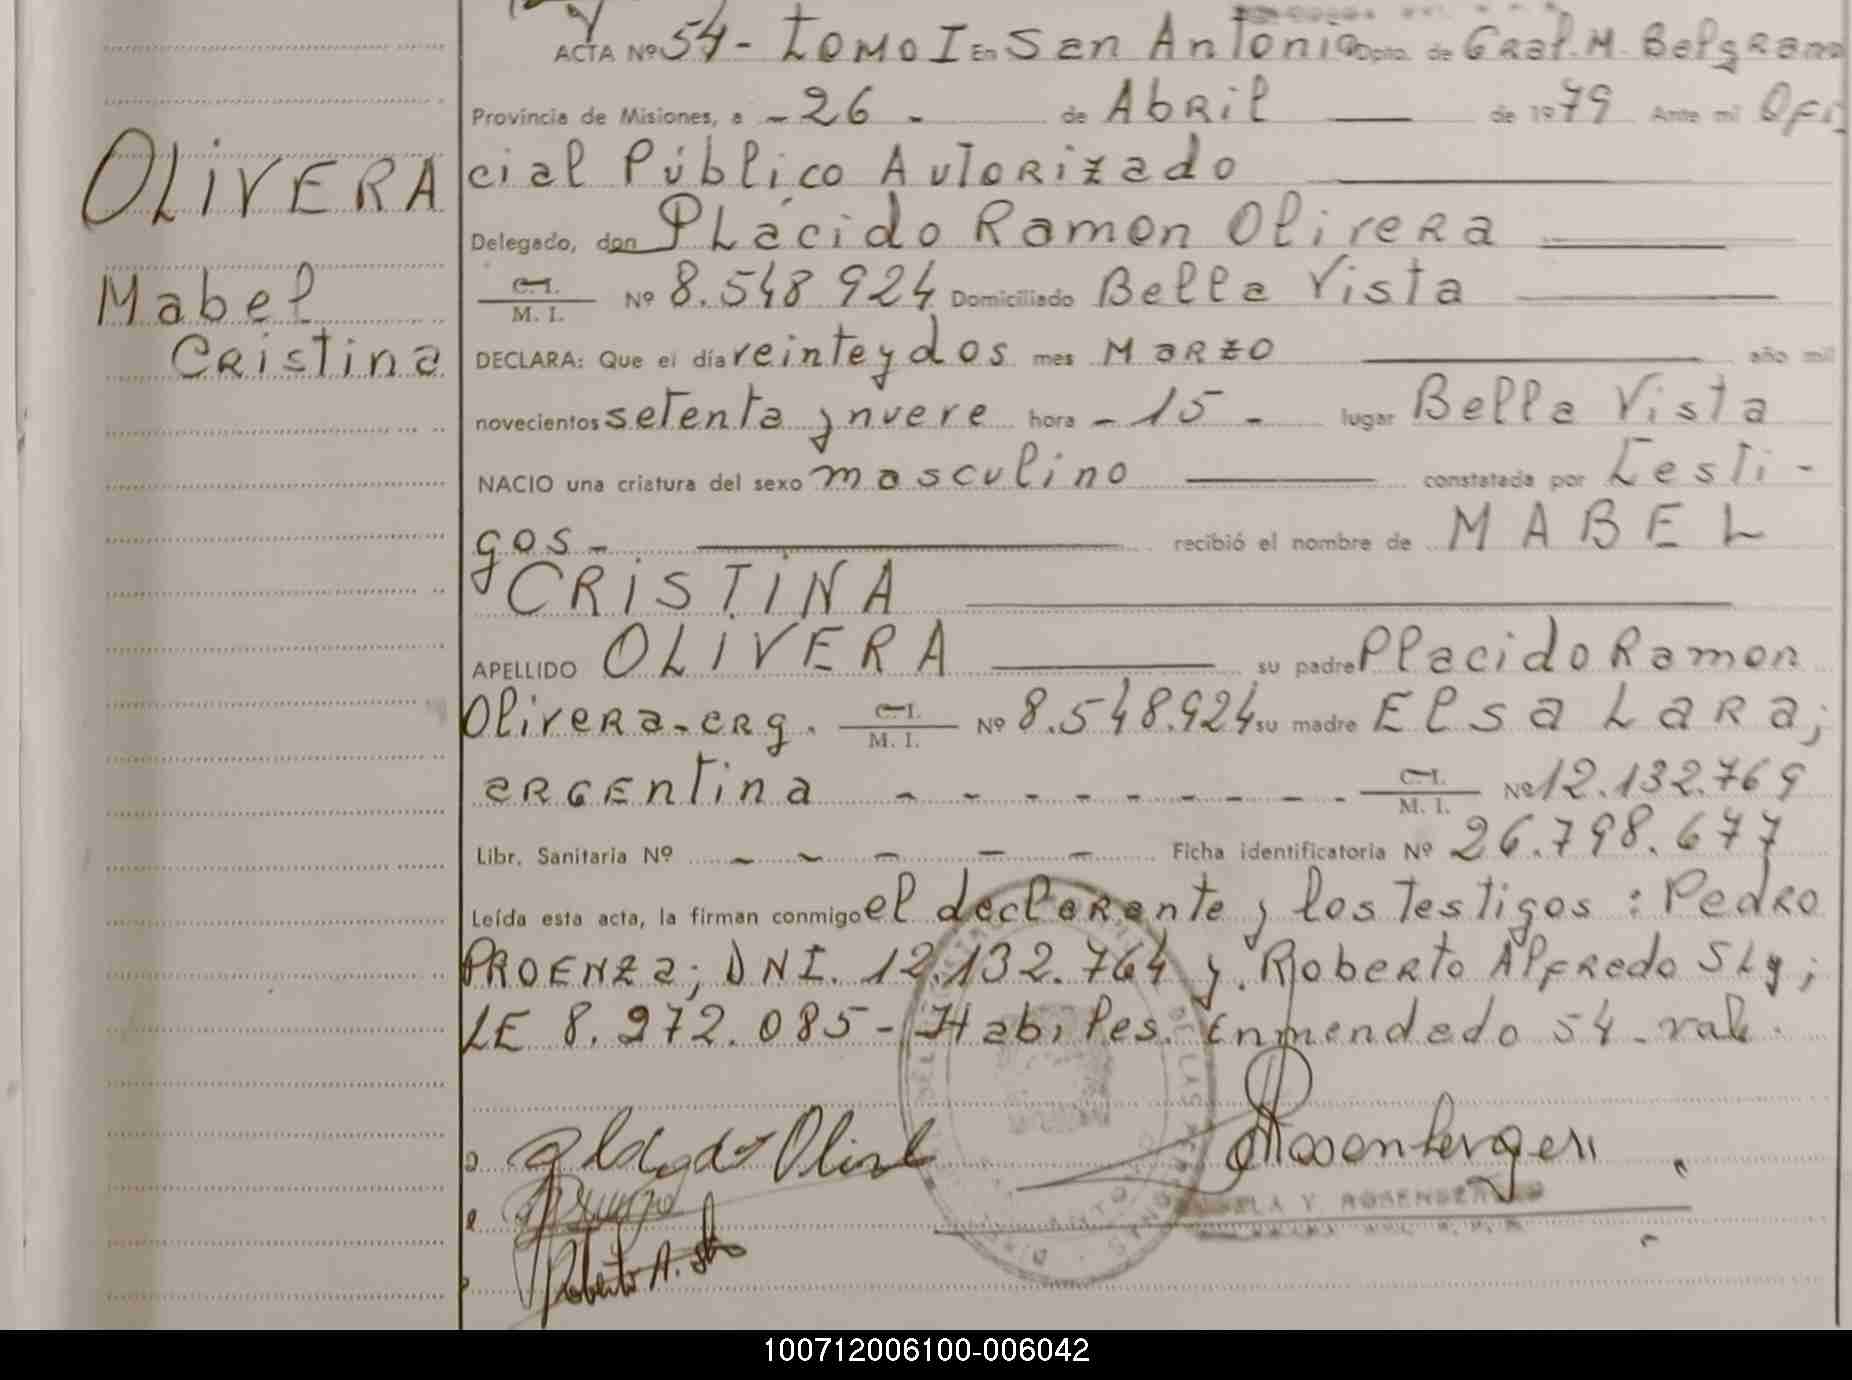 ACTA Nº 54 - TOMO I En San Antonio Dpto. de Gral. M. Belgrano
Provincia de Misiones, a - 26 - de Abril de 1979 Ante mí Ofi
OLIVERA
cial Público Autorizado
Delegado, don Plácido Ramon Olivera
Mabel
C.I. / M. I. Nº 8.548.924 Domiciliado Bella Vista
Cristina
DECLARA: Que el día veinte y dos mes Marzo año mil
novecientos setenta y nueve hora - 15 - lugar Bella Vista
NACIO una criatura del sexo masculino constatada por Testi-
gos - recibió el nombre de MABEL
CRISTINA
APELLIDO OLIVERA su padre Placido Ramon
Olivera - arg. C.I. / M. I. Nº 8.548.924 su madre Elsa Lara;
argentina - - - - - - - - - C.I. / M. I. Nº 12.132.769
Libr. Sanitaria Nº - - - - - Ficha identificatoria Nº 26.798.677
Leída esta acta, la firman conmigo el declarante y los testigos: Pedro
PROENZA; DNI. 12.132.764 y Roberto Alfredo Sly;
LE 8.272.085 - Habiles. Enmendado 54 - vale.
Rosenberger
Roberto A.
100712006100-006042